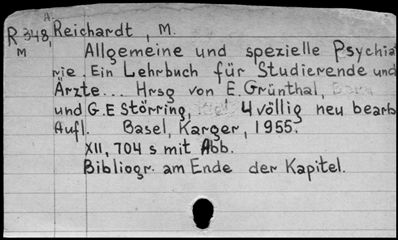 A.
R 348, Reichardt, M.
M Allgemeine und spezielle Psychia
rie. Ein Lehrbuch für Studierende und
Ärzte... Hrsg von E. Grünthal,
und G.E Störring, 4 völlig neu bearb
Aufl. Basel, Karger, 1955.
XII, 704 s mit Abb.
Bibliogr. am Ende der Kapitel.